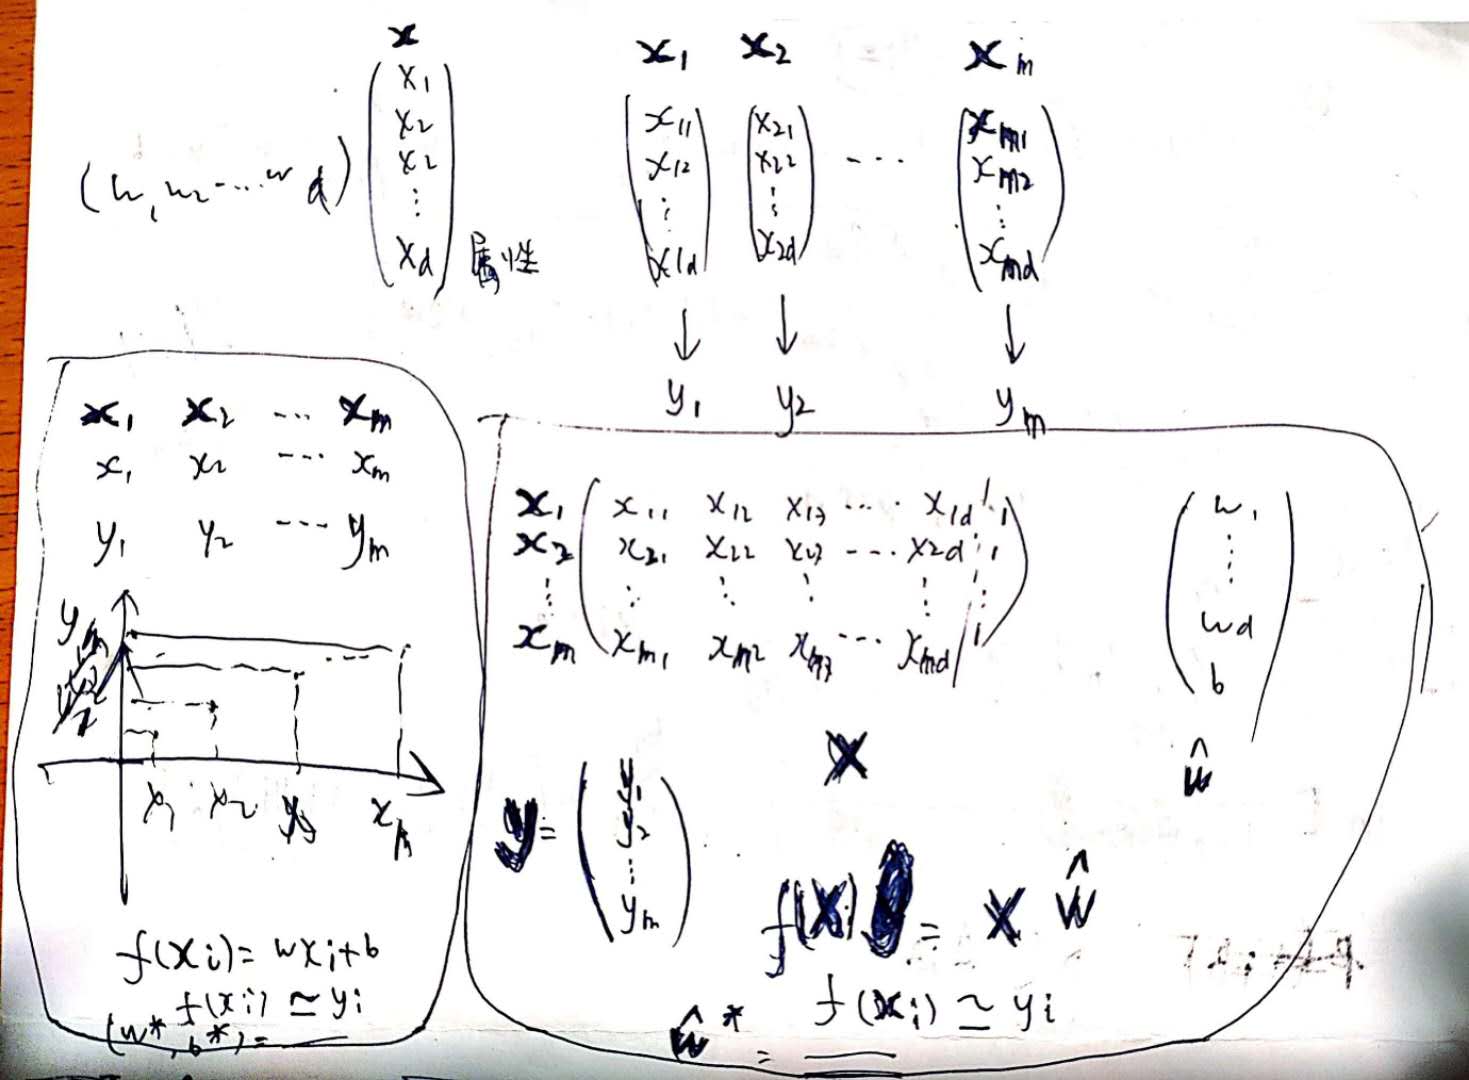 x
(w₁ w₂ ⋯ w d) ( x₁ x₂ x₂ ⋮ x_d ) 属性
x₁ x₂ ⋯ x_m
( x₁₁ x₁₂ ⋮ x₁d ) ( x₂₁ x₂₂ ⋮ x₂d ) ⋯ ( x_m1 x_m2 ⋮ x_md )
↓ ↓ ↓
y₁ y₂ y_m
x₁ x₂ ⋯ x_m
x₁ x₂ ⋯ x_m
y₁ y₂ ⋯ y_m
y_m
x₁ x₂ x_m
f(xi) = wxi+b
f(xi) ≃ yi
(w*, b*) =
x₁ ( x₁₁ x₁₂ x₁₃ ⋯ x₁d 1
x₂ x₂₁ x₂₂ x₂₃ ⋯ x₂d 1
⋮ ⋮ ⋮ ⋮ ⋮ ⋮
x_m x_m1 x_m2 x_m3 ⋯ x_md 1 )
( w₁ ⋮ wd b )
X
ŵ
y = ( y₁ y₂ ⋮ y_m )
f(X) = X ŵ
f(xi) ≃ yi
ŵ* =